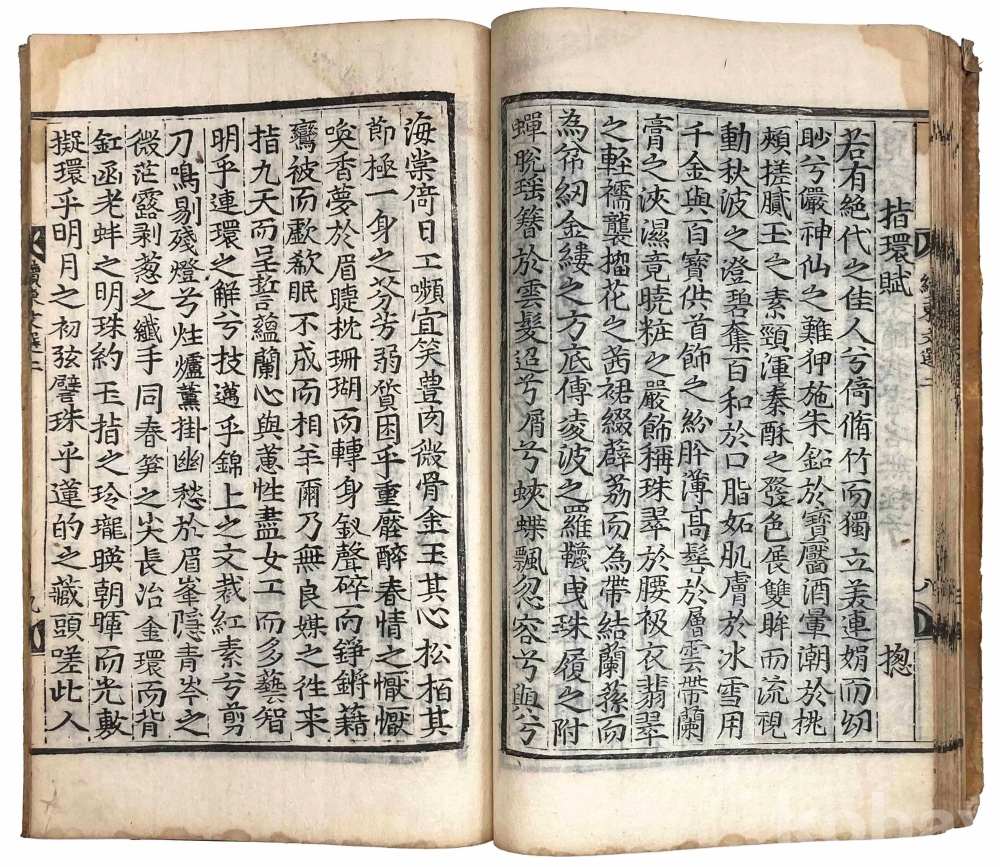 續東文選二 八
指環賦 摠
若有絶代之佳人兮倚脩竹而獨立羌連娟而幼
眇兮儼神仙之難狎施朱鉛於寶靨酒暈潮於桃
頰搓膩玉之素頸渾秦酥之發色展雙眸而流視
動秋波之澄碧奪百和於口脂妬肌膚於氷雪用
千金與百寶供首飾之紛肸薄高髻於層雲帶蘭
膏之浹濕竟曉粧之嚴飾稱珠翠於腰衱衣翡翠
之輕襦襲榴花之茜裙綴薜荔而為帶結蘭蓀而
為帋紉金縷之方底傳凌波之羅韈曳珠履之附
蟬晩瑶簪於雲髮迢兮屑兮蛺蝶飄忽容兮與兮
海棠倚日工嚬宜笑豊肉微骨金玉其心松栢其
節極一身之芬芳弱質困乎重醉春情之懨懨
喚香夢於眉睫枕珊瑚而轉身釵聲碎而錚鏘藉
鸞被而歔欷眠不成而相羊爾乃無良媒之徃来
指九天而呈誓蘊蘭心與蕙性盡女工而多藝智
明乎連環之解兮技邁乎錦上之文裁紅素兮剪
刀鳴剔殘燈兮炷爐薰掛幽愁於眉峯隱青岑之
微茫露剥葱之纖手同春笋之尖長冶金環而背
釭函老蚌之明珠約玉指之玲瓏暎朝暉而光敷
擬環乎明月之初弦譬珠乎蓮的之藏頭嗟此人
續東文選二 九